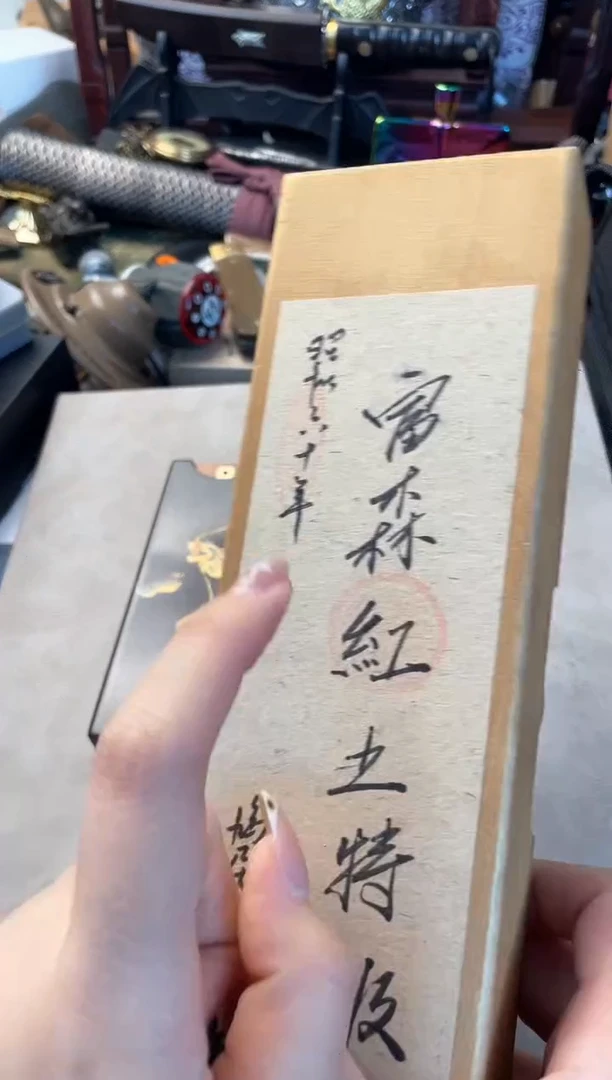 富森紅土特級
昭和六十年